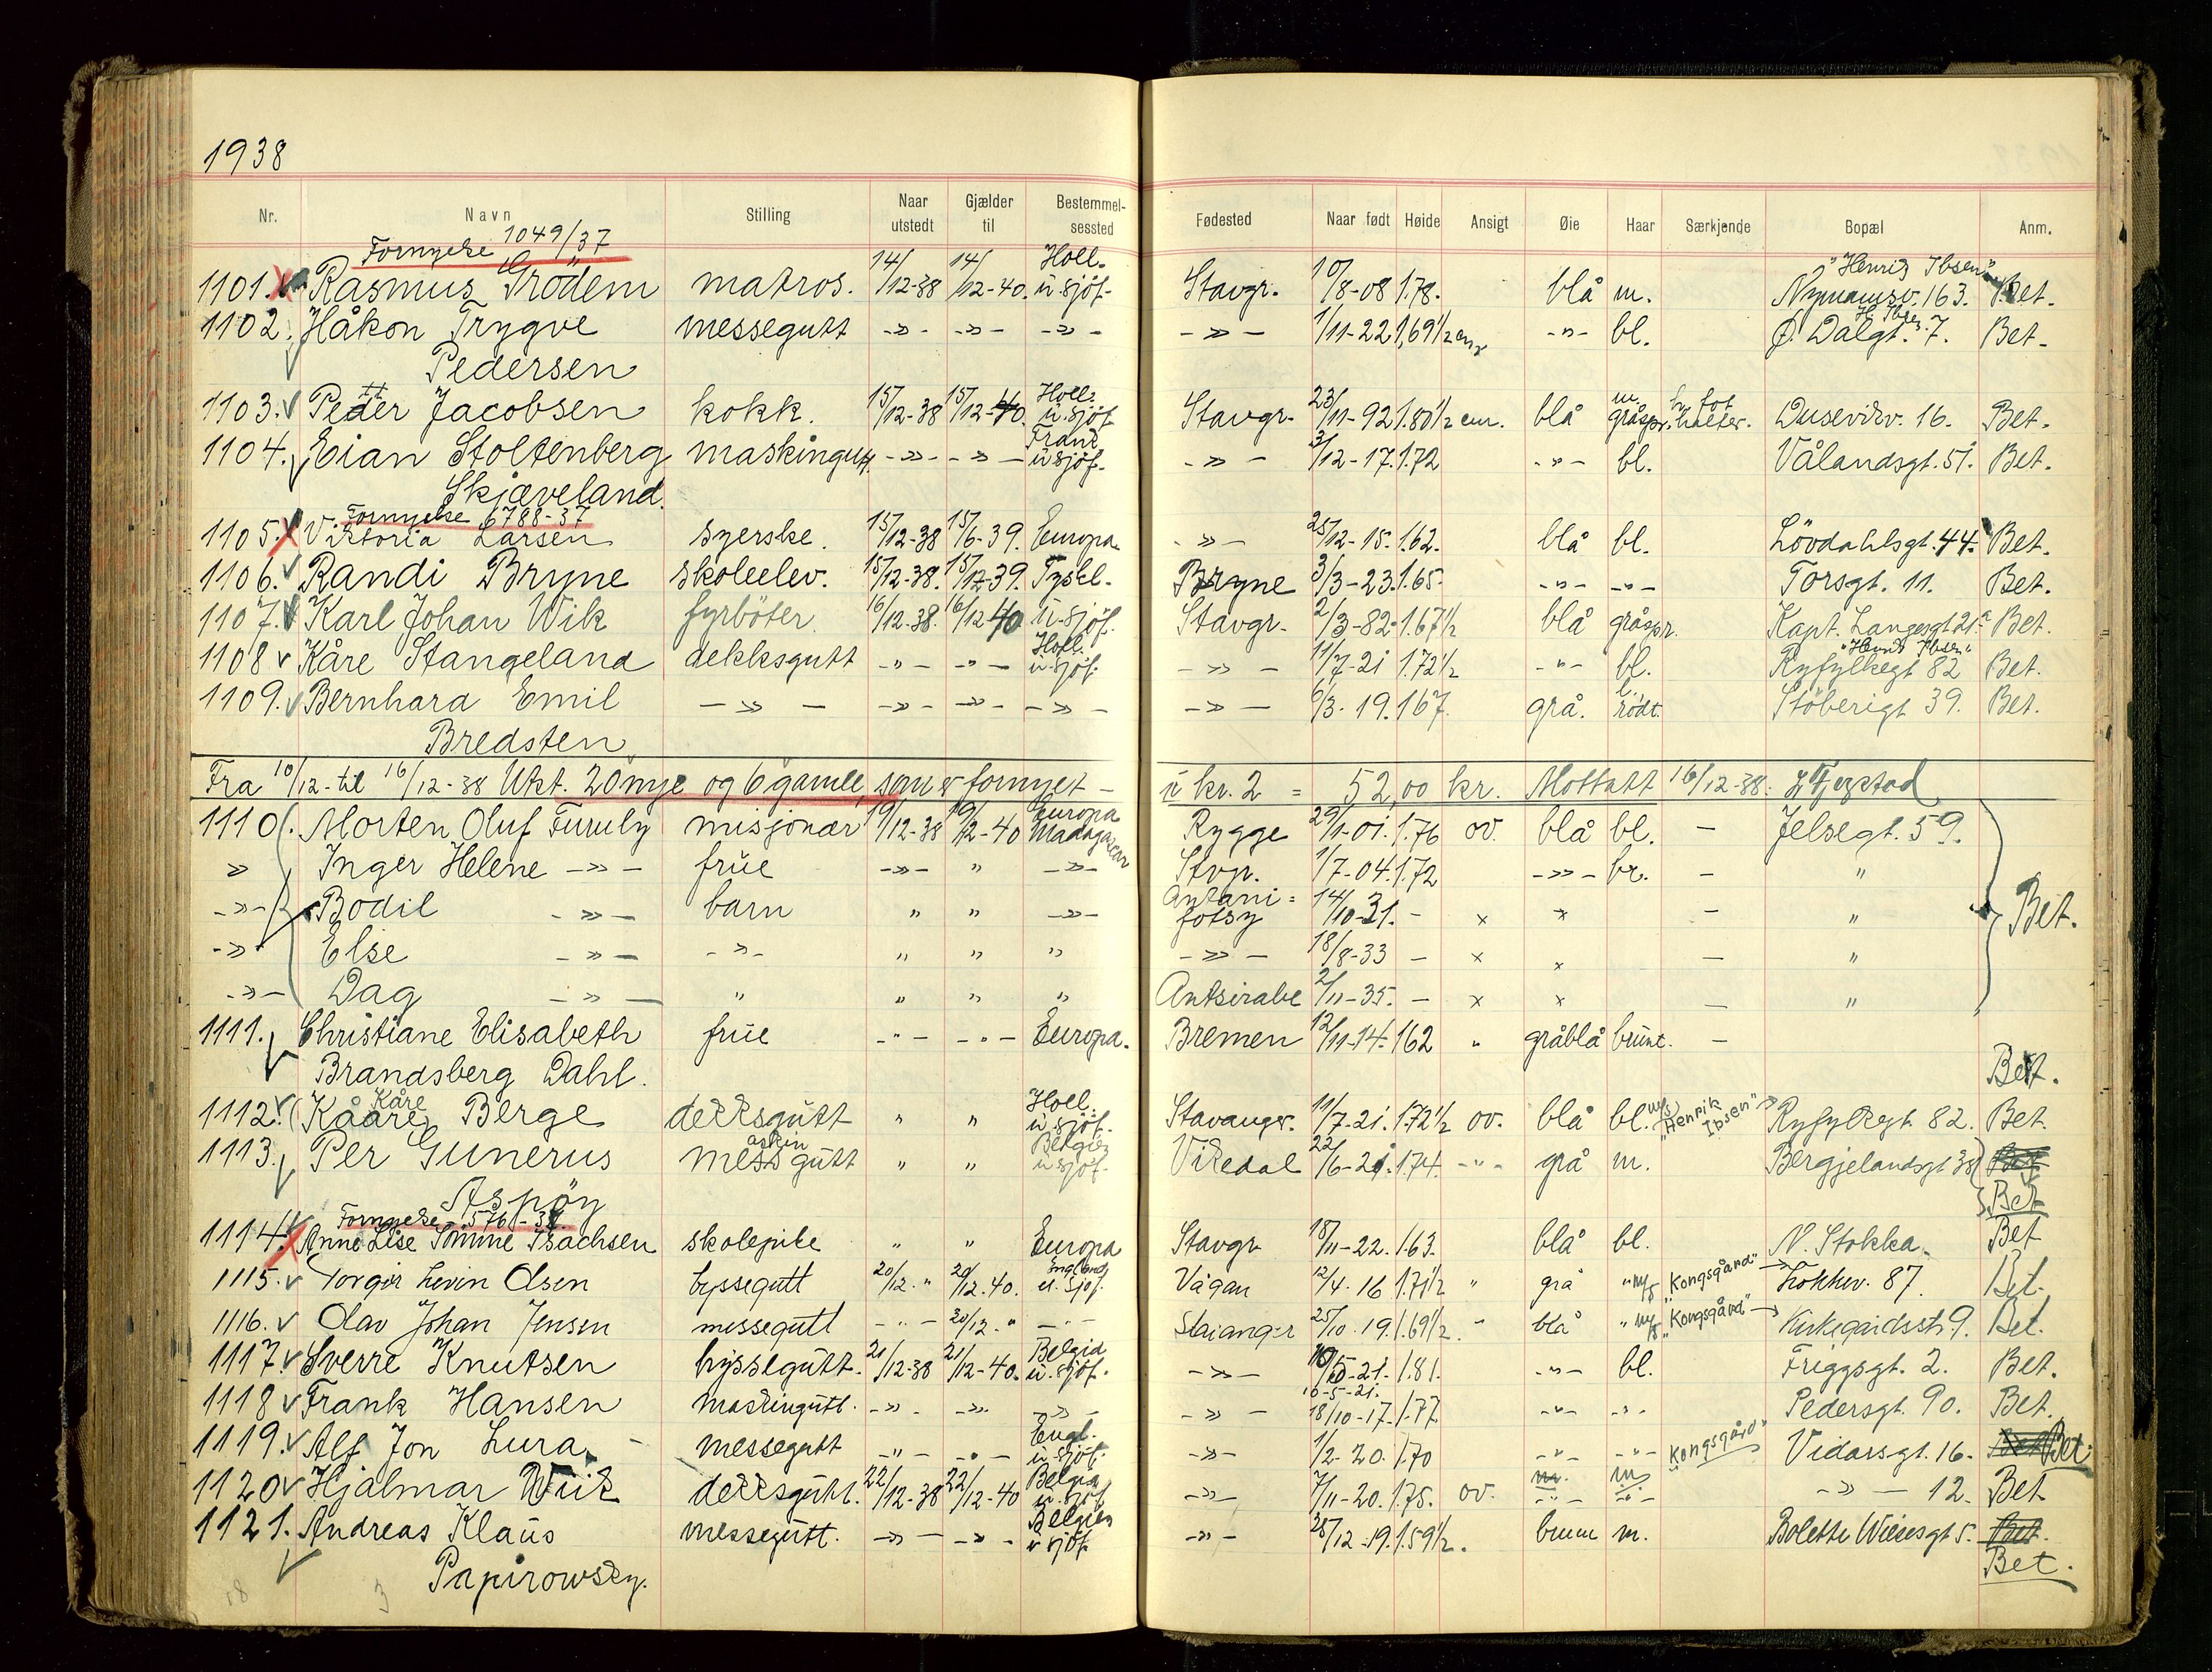 1938
Nr. Navn Stilling Naar utstedt Gjælder til Bestemmelsessted Fødested Naar født Høide Ansigt Øie Haar Særkjende Bopæl Anm.
Fornyelse 1049/37 Holl. "Henrik Ibsen"
1101. Rasmus Grödem matros. 14/12-38 14/12-40. u. sjöf. Stavgr. 10/8-08 1.78. blå m. Nymansv. 163. Bet.
1102. Håkon Trygve messegutt -»- -»- -»- -»- 1/11-22 1,69½ cm -"- bl. Ø. Dalgt. 7. Bet.
Pedersen
1103. Peder Jacobsen kokk. 15/12-38 15/12-40. Holl. u. sjöf. Stavgr. 23/11-92 1.80½ cm. blå m. gråspr. h. fot halter. Dusevikv. 16. Bet.
1104. Eian Stoltenberg maskingutt -»- -»- Frank u sjöf. -»- 3/12-17. 1.72 -"- bl. Vålandsgt. 51. Bet.
Skjæveland.
Fornyelse 6788-37
1105. Viktoria Larsen syerske. 15/12-38 15/6-39. Europa -»- 25/12-15. 1.62. blå bl. Lövdahlsgt. 44. Bet.
1106. Randi Bryne skoleelev. 15/12-38. 15/12-39. Tyskl. Bryne 3/3-23. 1.65. -"- -"- Torsgt. 11. Bet.
1107. Karl Johan Wik fyrböter 16/12-38. 16/12-40 u. sjöf. Stavgr. 2/3-82. 1.67½ blå gråspr. Kapt. Langesgt 21a Bet.
1108 Kåre Stangeland dekksgutt -"- -"- Holl. u sjöf. -»- 11/7-21 1.72½ -"- bl. "Henrik Ibsen" Ryfylkegt 82 Bet.
1109. Bernhard Emil -»- -»- -»- -»- -»- 6/3-19. 167. grå. l. rödt. Stöberigt 39. Bet.
Bredsten
Fra 10/12- til 16/12-38 Utst. 20 nye og 6 gamle, som er fornyet - u kr. 2 = 52,00 kr. Mottatt 16/12-38.
1110. Morten Oluf Furuly misjonær 19/12-38 19/12-40 Europa Madagascar Rygge 29/1-01. 1.76 ov. blå bl. - Jelsegt. 59.
» Inger Helene -»- frue -»- " -»- Stvgr. 1/7-04. 1.72 -»- br. - "
-»- Bodil -»- barn " " -»- Antani=fotsy 14/10-31. - x x - " Bet.
-»- Else -»- -»- " " " -»- 18/8-33 - x x - "
-»- Dag -»- " " " " Antsirabe 2/11-35. - x x - "
1111. Christiane Elisabeth frue -"- -"- Europa. Bremen 12/11-14. 162 " gråblå brunt. -
Brandsberg Dahl. Bet.
1112. Kåare Kåre Berge dekksgutt " " Holl. u. sjöf. Stavanger. 11/7-21. 1.72½ ov. blå bl. m/s "Henrik Ibsen" Ryfylkegt. 82. Bet.
1113. Per Gunerus messgutt askin " " Belgien u sjöf. Vikedal 22/6-21. 1.74. -"- grå m. Bergjelandsgt 38 Bet
Aspöy Bet
Fornyelse 576-38.
1114. Anne Lise Sömme Isachsen skolepike " " Europa Stavgr. 18/11-22. 1.63. blå bl. N. Stokka. Bet
1115. Torgeir Levin Olsen byssegutt 20/12. " 20/12.40. England u. sjöf. Vågan 12/4.16 1.71½ " grå " m/s "Kongsgård" Lokkev. 87. Bet.
1116. Olav Johan Jensen messegutt -"- 20/12. " -"- Stavanger 25/10.19. 1.69½. " blå " m/s "Kongsgård" Kirkegårdsstr 9. Bet.
1117. Sverre Knutsen byssegutt. 21/12-38 21/12-40. Belgia u. sjöf. -»- 10/5-21. 1.81. -"- bl. Friggsgt. 2. Bet.
1118 Frank Hansen maskingutt. -»- -»- -»- -»- 10-5-21. 18/10-17. 1.77. -"- -"- Pedersgt. 90. Bet.
1119. Alf Jon Lura - messegutt -"- -"- Engl. u sjöf. -»- 1/2-20. 1.70 -"- -"- "Kongsgård" Vidarsgt. 16. Bet
1120 Hjalmar Wiik dekksgutt. 22/12-38 22/12-40 Belgia u sjöf -»- 7/11-20. 1.75. ov. -"- m -"- -»- 12. Bet
1121. Andreas Klaus messegutt. -»- -»- Belgien u sjöf. -»- 28/12-19. 1.59½. brune m. Bolette Wiesesgt 5. Bet.
Papirowsky. Bet.
18 3